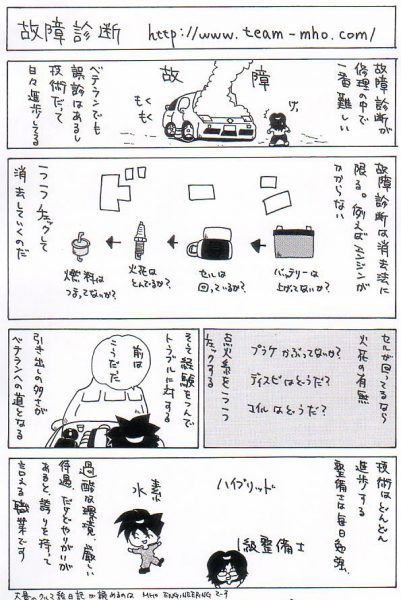 故障診断 http://www.team-mho.com/
故障診断が
修理の中で
一番難しい
故障
もくもく
げっ
ベテランでも
誤診はあるし
技術だって
日々進歩してる
故障診断は消去法に
限る。例えばエンジンが
かからない
バッテリーは
上げてないか?
セルは
回っているか?
火花は
とんでるか?
燃料は
つまってないか?
一つ一つチェックして
消去していくのだ
セルが回ってるなら
火花の有無
プラグかぶってないか?
デスビはどうだ?
コイルはどうだ?
点火系を一つ一つ
チェックする
そして経験をつんで
トラブルに対する
前は
こうだだ
引き出しの多さが
ベテランへの道となる
技術はどんどん
進歩する
整備士は毎日勉強、
ハイブリッド
水素
1級整備士
過酷な環境、厳しい
待遇、だけどやりがいが
あると、誇りを持って
言える職業です